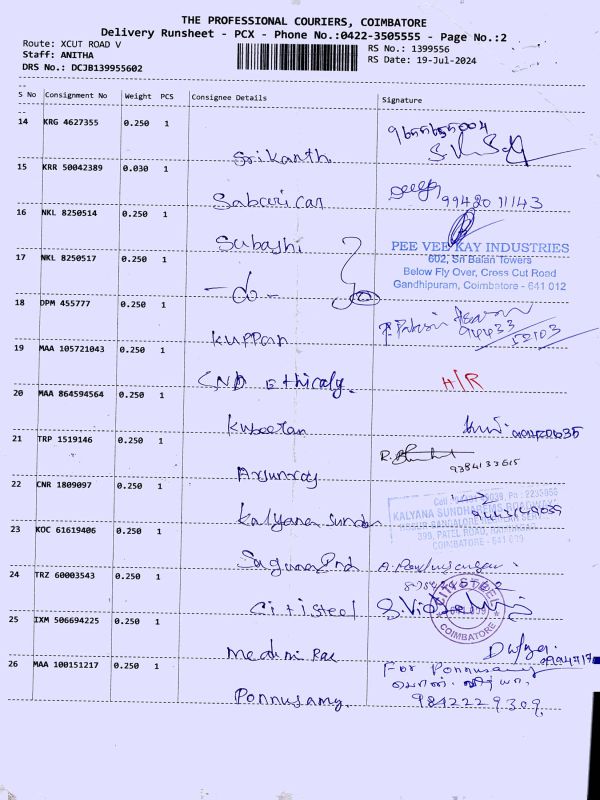 THE PROFESSIONAL COURIERS, COIMBATORE
Delivery Runsheet - PCX - Phone No.:0422-3505555 - Page No.:2
Route: XCUT ROAD V
RS No.: 1399556
Staff: ANITHA
RS Date: 19-Jul-2024
DRS No.: DCJB139955602
S No Consignment No Weight PCS Consignee Details Signature
14 KRG 4627355 0.250 1
Srikanth
15 KRR 50042389 0.030 1
Sabari can 99420 11143
16 NKL 8250514 0.250 1
Subashi
PEE VEE KAY INDUSTRIES
602, Sri Balan Towers
17 NKL 8250517 0.250 1
Below Fly Over, Cross Cut Road
Gandhipuram, Coimbatore - 641 012
- do -
18 DPM 455777 0.250 1
Kuppan
19 MAA 105721043 0.250 1
CND Ethicaly. H/R
20 MAA 864594564 0.250 1
Kubeeran
21 TRP 1519146 0.250 1
Arjunraj 9384133615
22 CNR 1809097 0.250 1
KALYANA SUNDHARAMS ROADWAYS
Kalyana Sundar
399, PATEL ROAD,
COIMBATORE - 641 009
23 KOC 61619406 0.250 1
Saguna Fnd
24 TRZ 60003543 0.250 1
Citi steel
COIMBATORE
25 IXM 506694225 0.250 1
Meduri Rae
26 MAA 100151217 0.250 1
For Ponnusamy
Ponnusamy. 9842229309.